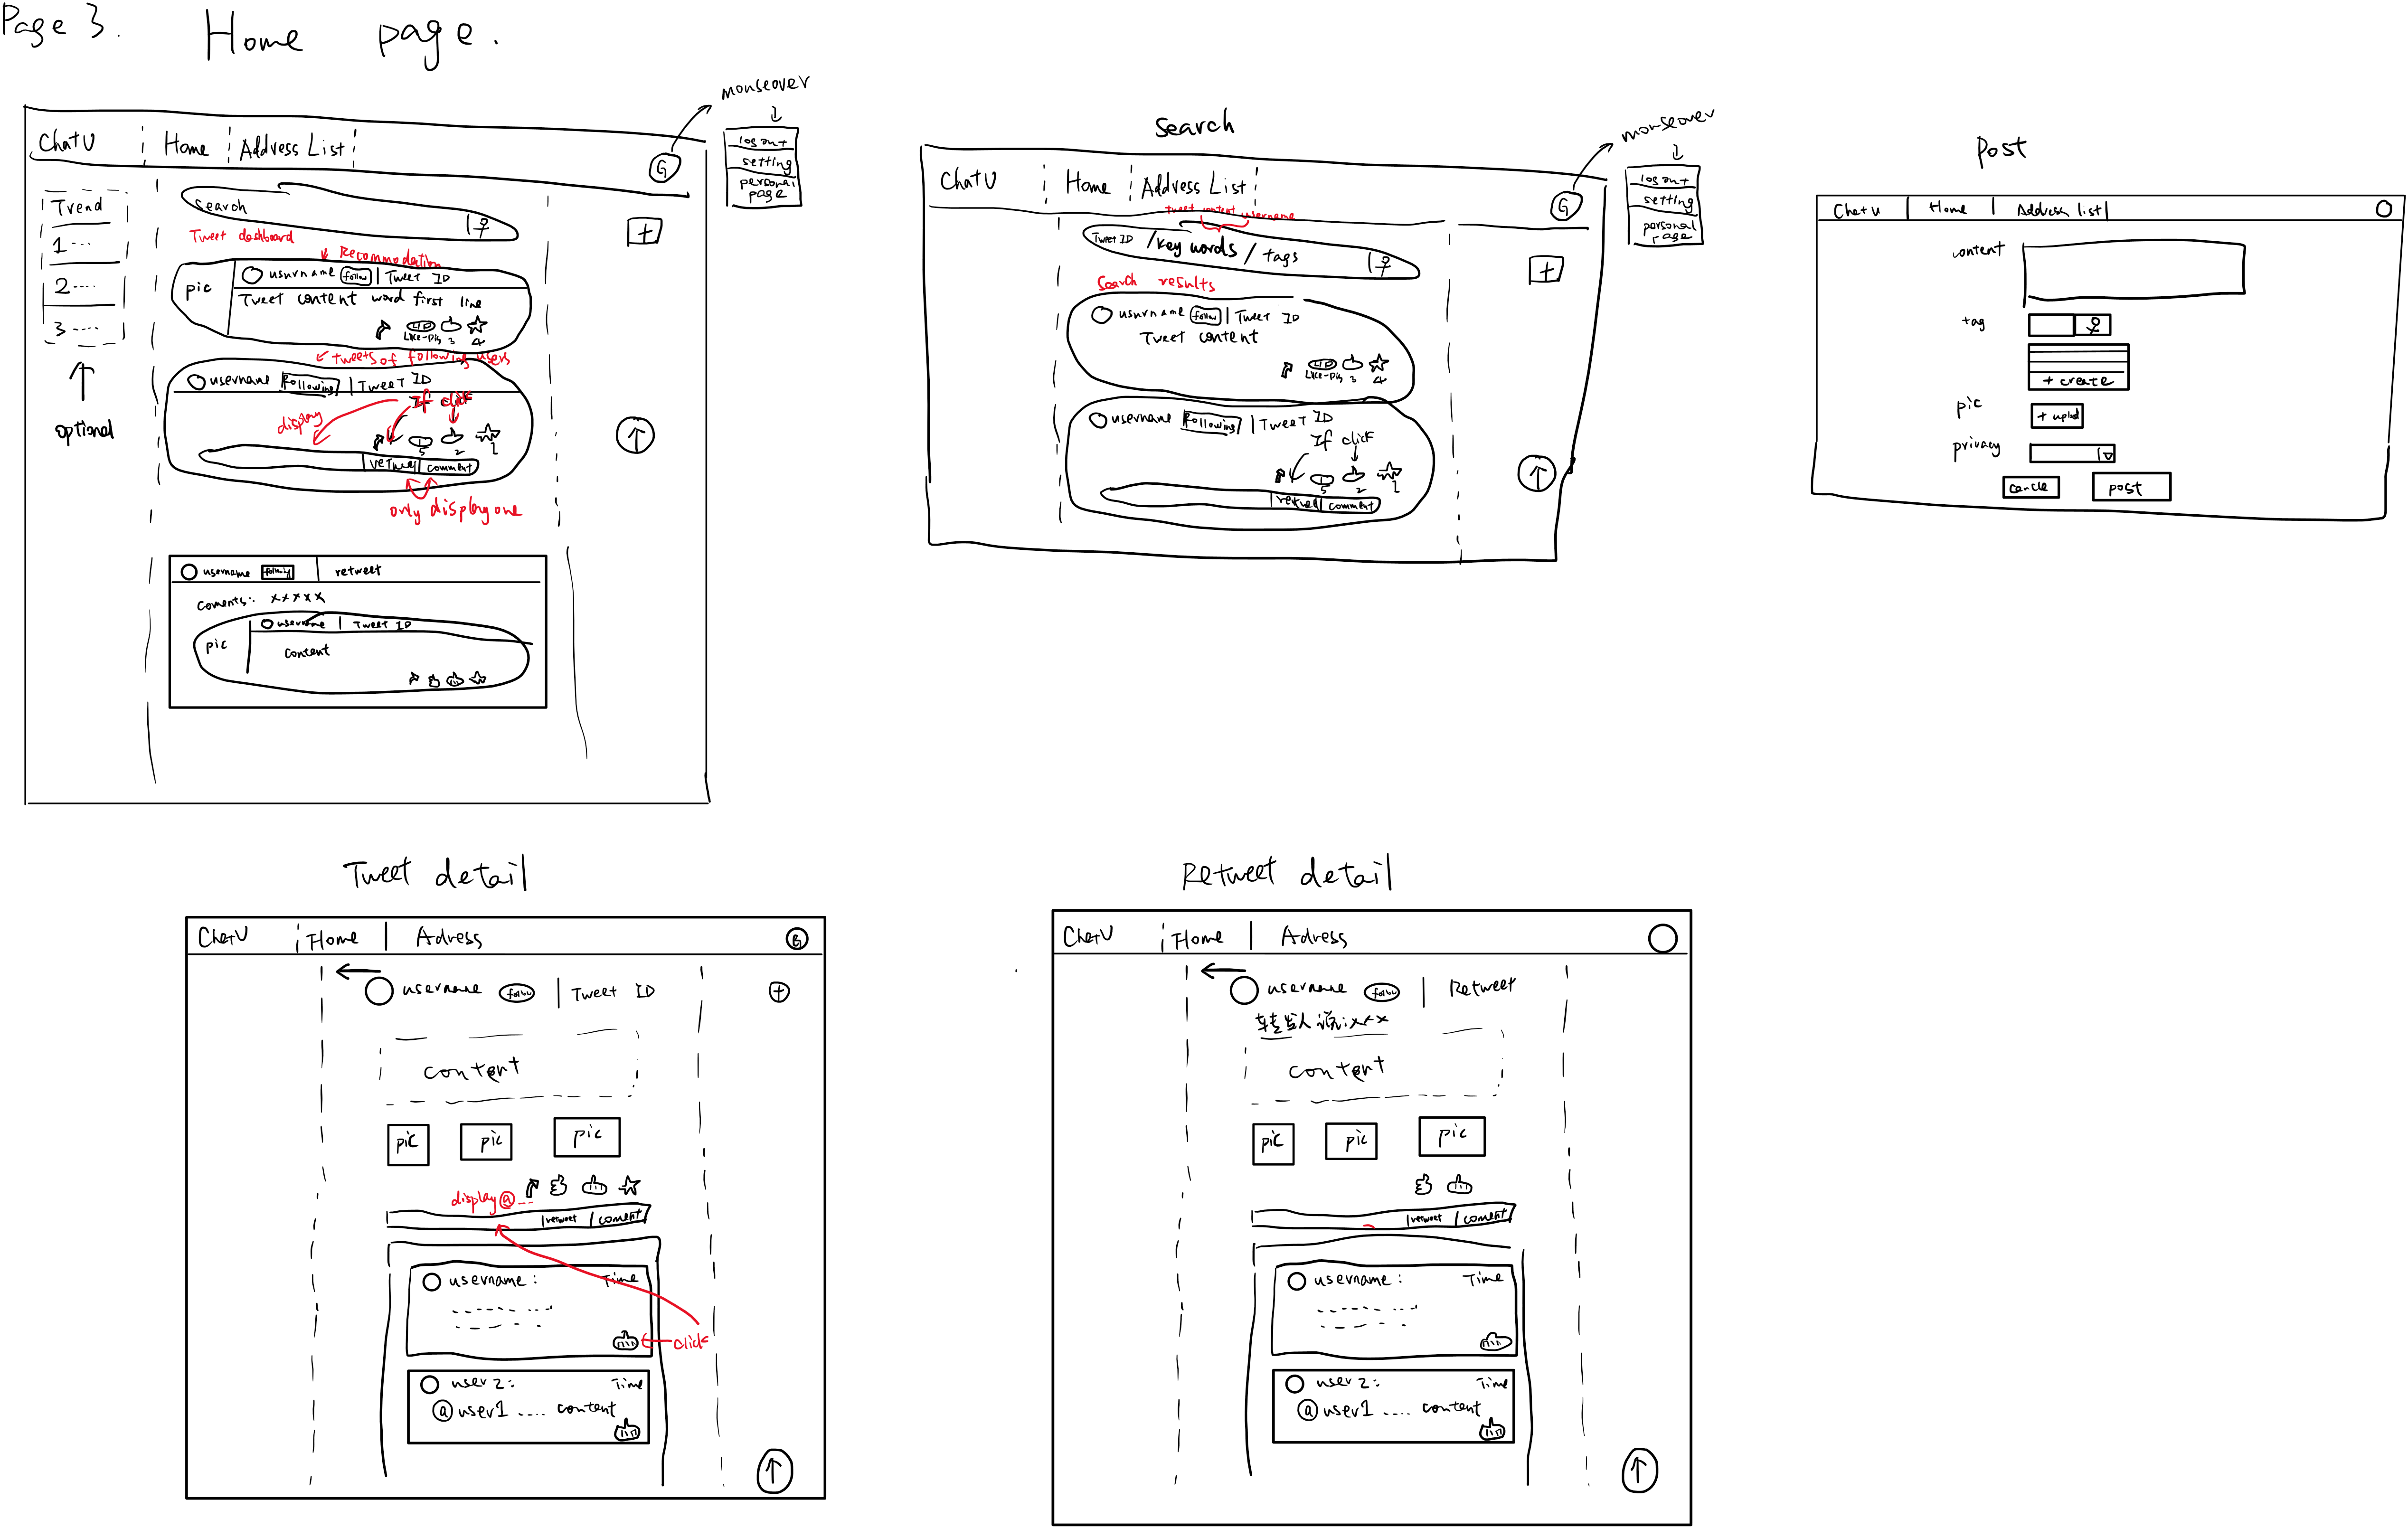 Page 3.
Home page.
mouseover
ChatU Home Address List
G
log out
setting
personal
page
Trend
1 ...
2 ....
3 ....
optional
search
Tweet dashboard
Recommodation
pic
usurname follow | Tweet ID
Tweet content word first line
3 4
Tweets of following users
username Following | Tweet ID
If click
display
5 2 1
comment
only display one
username following retweet
coments: xxxxx
username | Tweet ID
pic
content
+
search
mouseover
ChatU Home Address List
G
log out
setting
personal
page
tweet content username
Tweet ID / key words / tags
search results
usurname follow | Tweet ID
Tweet content
3 4
username Following | Tweet ID
If click
5 2 1
comment
+
Post
ChatU Home Address list
content
tag
+ create
pic
privacy
cancle post
Tweet detail
ChatU Home Adress
username follow | Tweet ID
+
content
pic pic pic
display @ ...
retweet coment
username : Time
click
user 2: Time
@ user1 .... content
Retweet detail
ChatU Home Adress
username follow | Retweet
转发人说:xxx
content
pic pic pic
retweet coment
username : Time
user 2: Time
@ user1 .... content